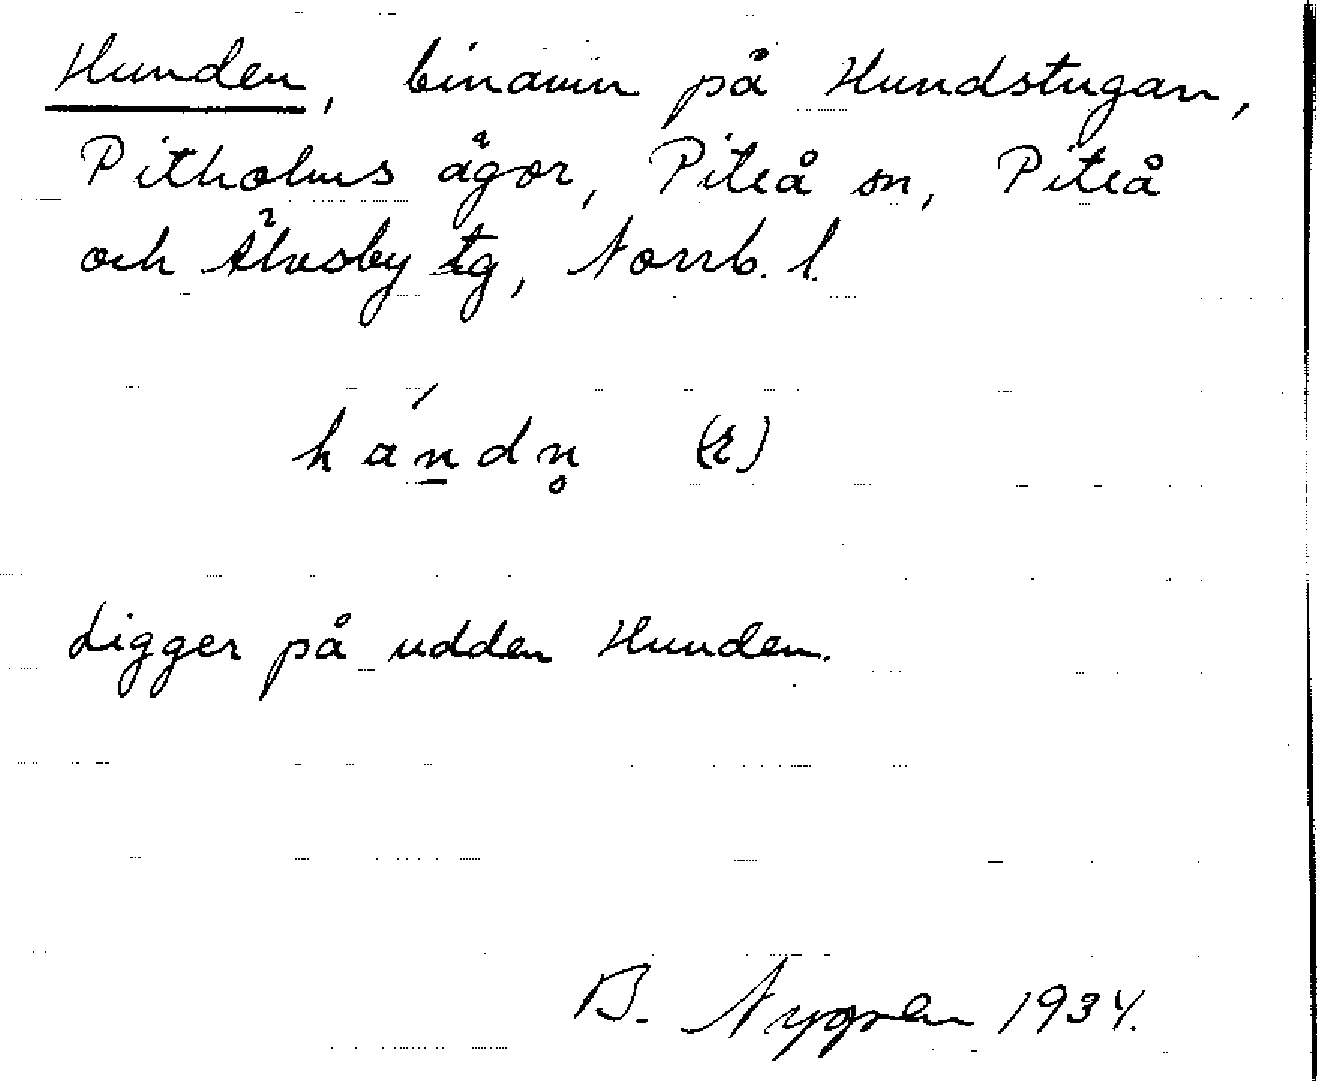 Hunden, binamn på Hundstugan,
Pitholms ägor, Piteå sn, Piteå
och Älvsby tg, Norrb. l.
hándn̥
Ligger på udden Hunden.
B. Nygren 1934.